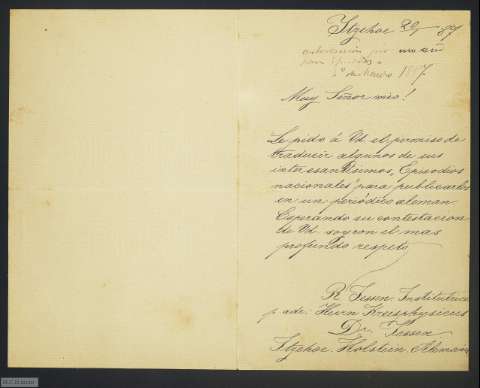 Itzehoe 29/ 87
autorización por un año
para Episodios
1887
Muy Señor mio!
Le pido á Vd. el permiso de
traducir algunos de sus
interesantísimos, Episodios
nacionales" para publicarlos
en un periódico aleman.
Esperando su contestacion
de Vd. soy con el mas
profundo respeto
R. Tessen Institutrice
p. adr. Herrn Kreisphysicus
Dr. Tessen
Itzehoe. Holstein. Alemania